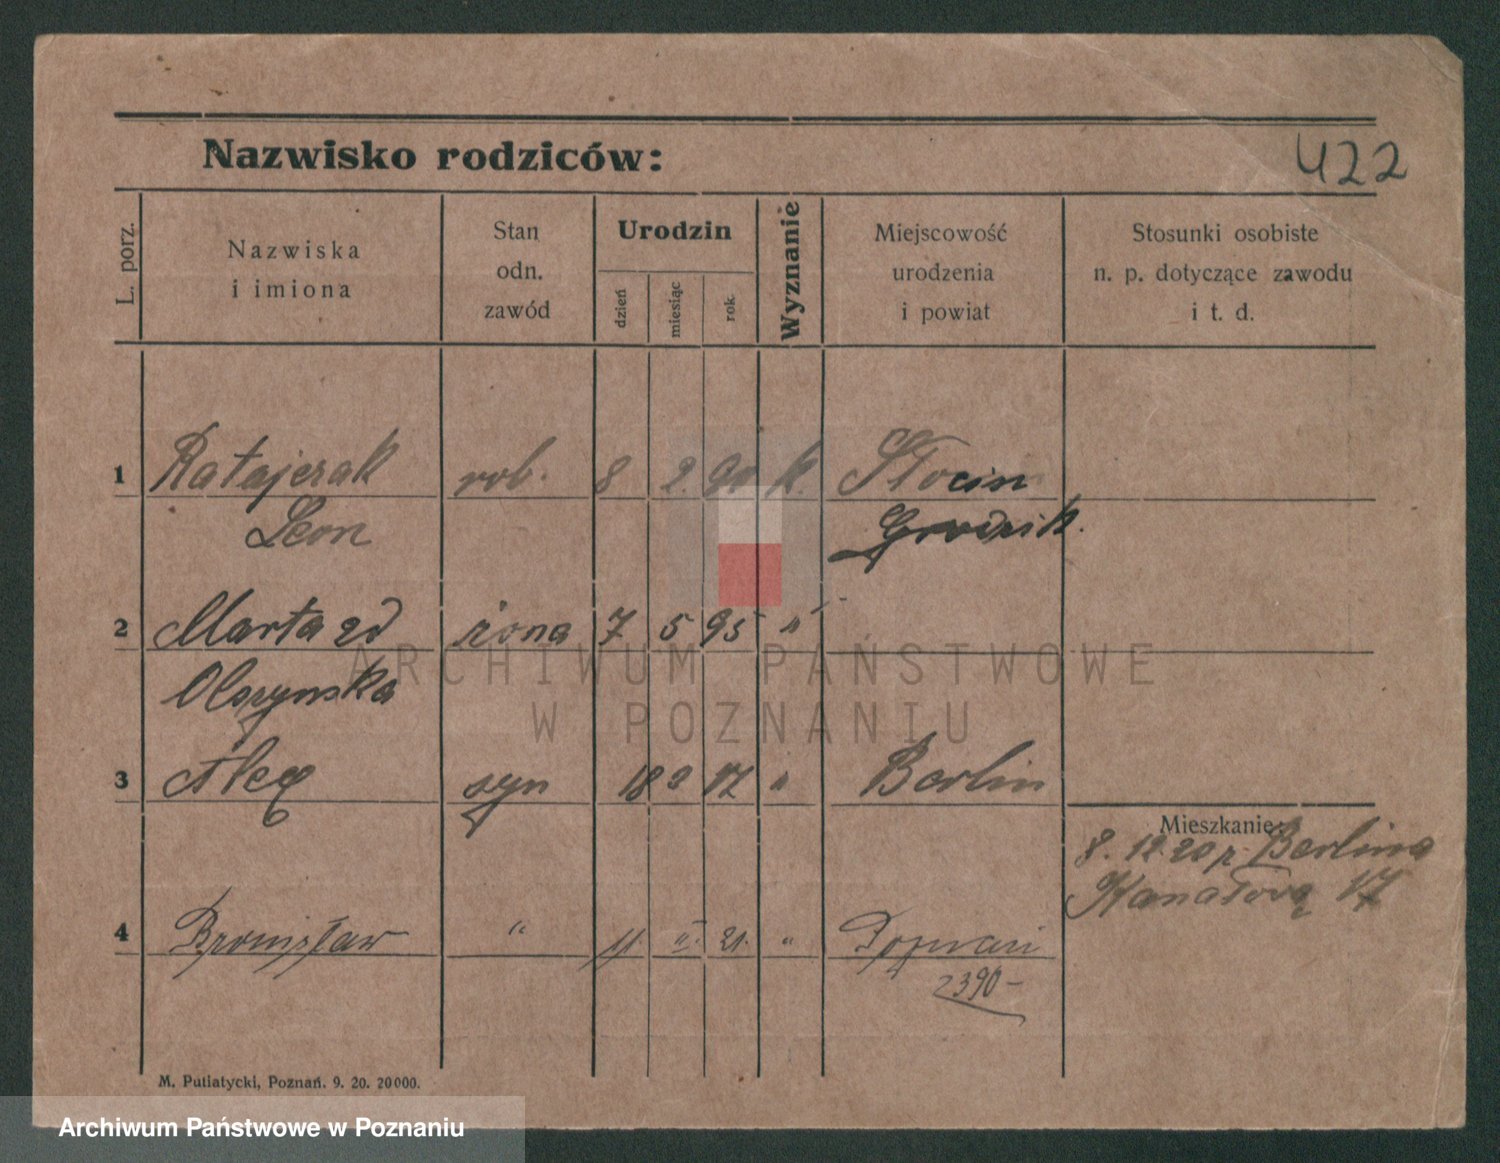 Nazwisko rodziców:
422
L. porz.
Nazwiska
i imiona
Stan
odn.
zawód
Urodzin
dzień
miesiąc
rok.
Wyznanie
Miejscowość
urodzenia
i powiat
Stosunki osobiste
n. p. dotyczące zawodu
i t. d.
1 Ratajczak rob. 8 2. 90 k. Słocin
Leon Grodzisk.
2 Marta zd żona 7 5 95 "
Olszynska
3 Alex syn 18 17 " Berlin
Mieszkanie:
8. 12. 20 z Berlina
Kanałowa 17
4 Bronisław " 11. II. 21. " Poznań
2390-
M. Putiatycki, Poznań. 9. 20. 20000.
ARCHIWUM PAŃSTWOWE
W POZNANIU
Archiwum Państwowe w Poznaniu